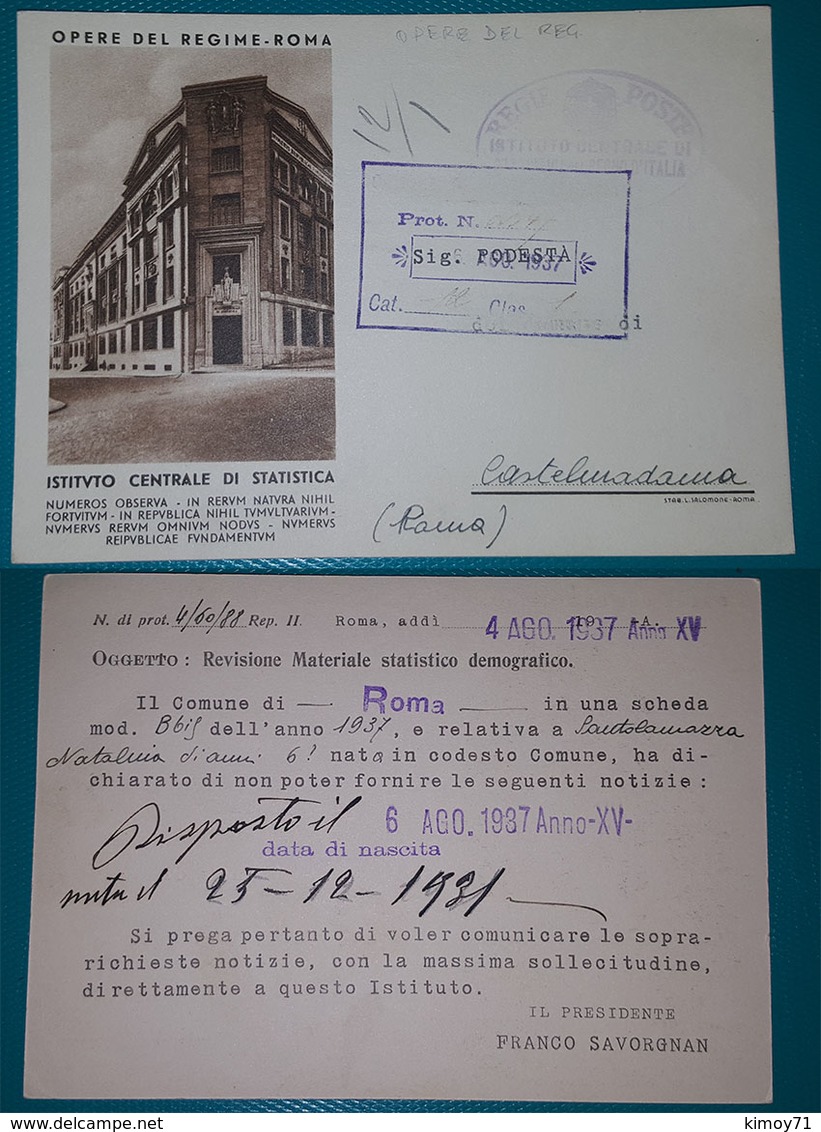 OPERE DEL REGIME-ROMA
OPERE DEL REG.
12/1
REGIE POSTE
ISTITUTO CENTRALE DI
D'ITALIA
Prot. N.
Sig. PODESTÀ
6 AGO. 1937
Cat. 12 Clas. 1
di
ISTITVTO CENTRALE DI STATISTICA
NVMEROS OBSERVA - IN RERVM NATVRA NIHIL
FORTVITVM - IN REPVBLICA NIHIL TVMVLTVARIVM -
NVMERVS RERVM OMNIVM NODVS - NVMERVS
REIPVBLICAE FVNDAMENTVM
Castelmadama
STAB. L. SALOMONE - ROMA
(Roma)
N. di prot. 4/60/88 Rep. II. Roma, addì 4 AGO. 1937 Anno XV
OGGETTO: Revisione Materiale statistico demografico.
Il Comune di — Roma — in una scheda
mod. Bbis dell'anno 1937, e relativa a Santolamazza
Natalina di anni 6! nata in codesto Comune, ha di-
chiarato di non poter fornire le seguenti notizie:
Risposto il 6 AGO. 1937 Anno-XV-
data di nascita
nata il 25-12-1931
Si prega pertanto di voler comunicare le sopra-
richieste notizie, con la massima sollecitudine,
direttamente a questo Istituto.
IL PRESIDENTE
FRANCO SAVORGNAN
kimoy71